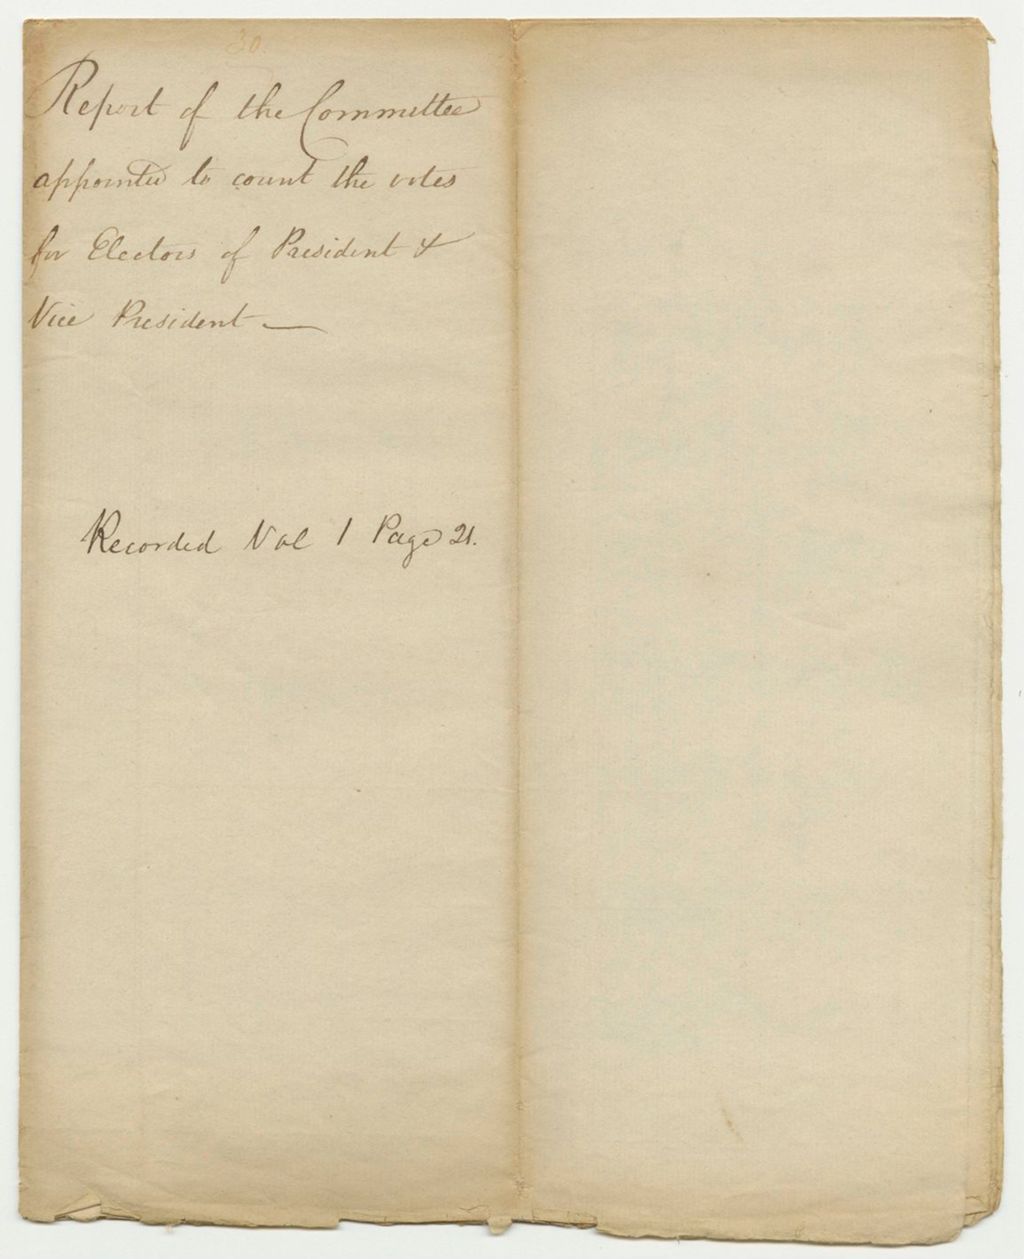 30.
Report of the Committee
appointed to count the votes
for Electors of President &
Vice President —
Recorded Vol 1 Page 21.